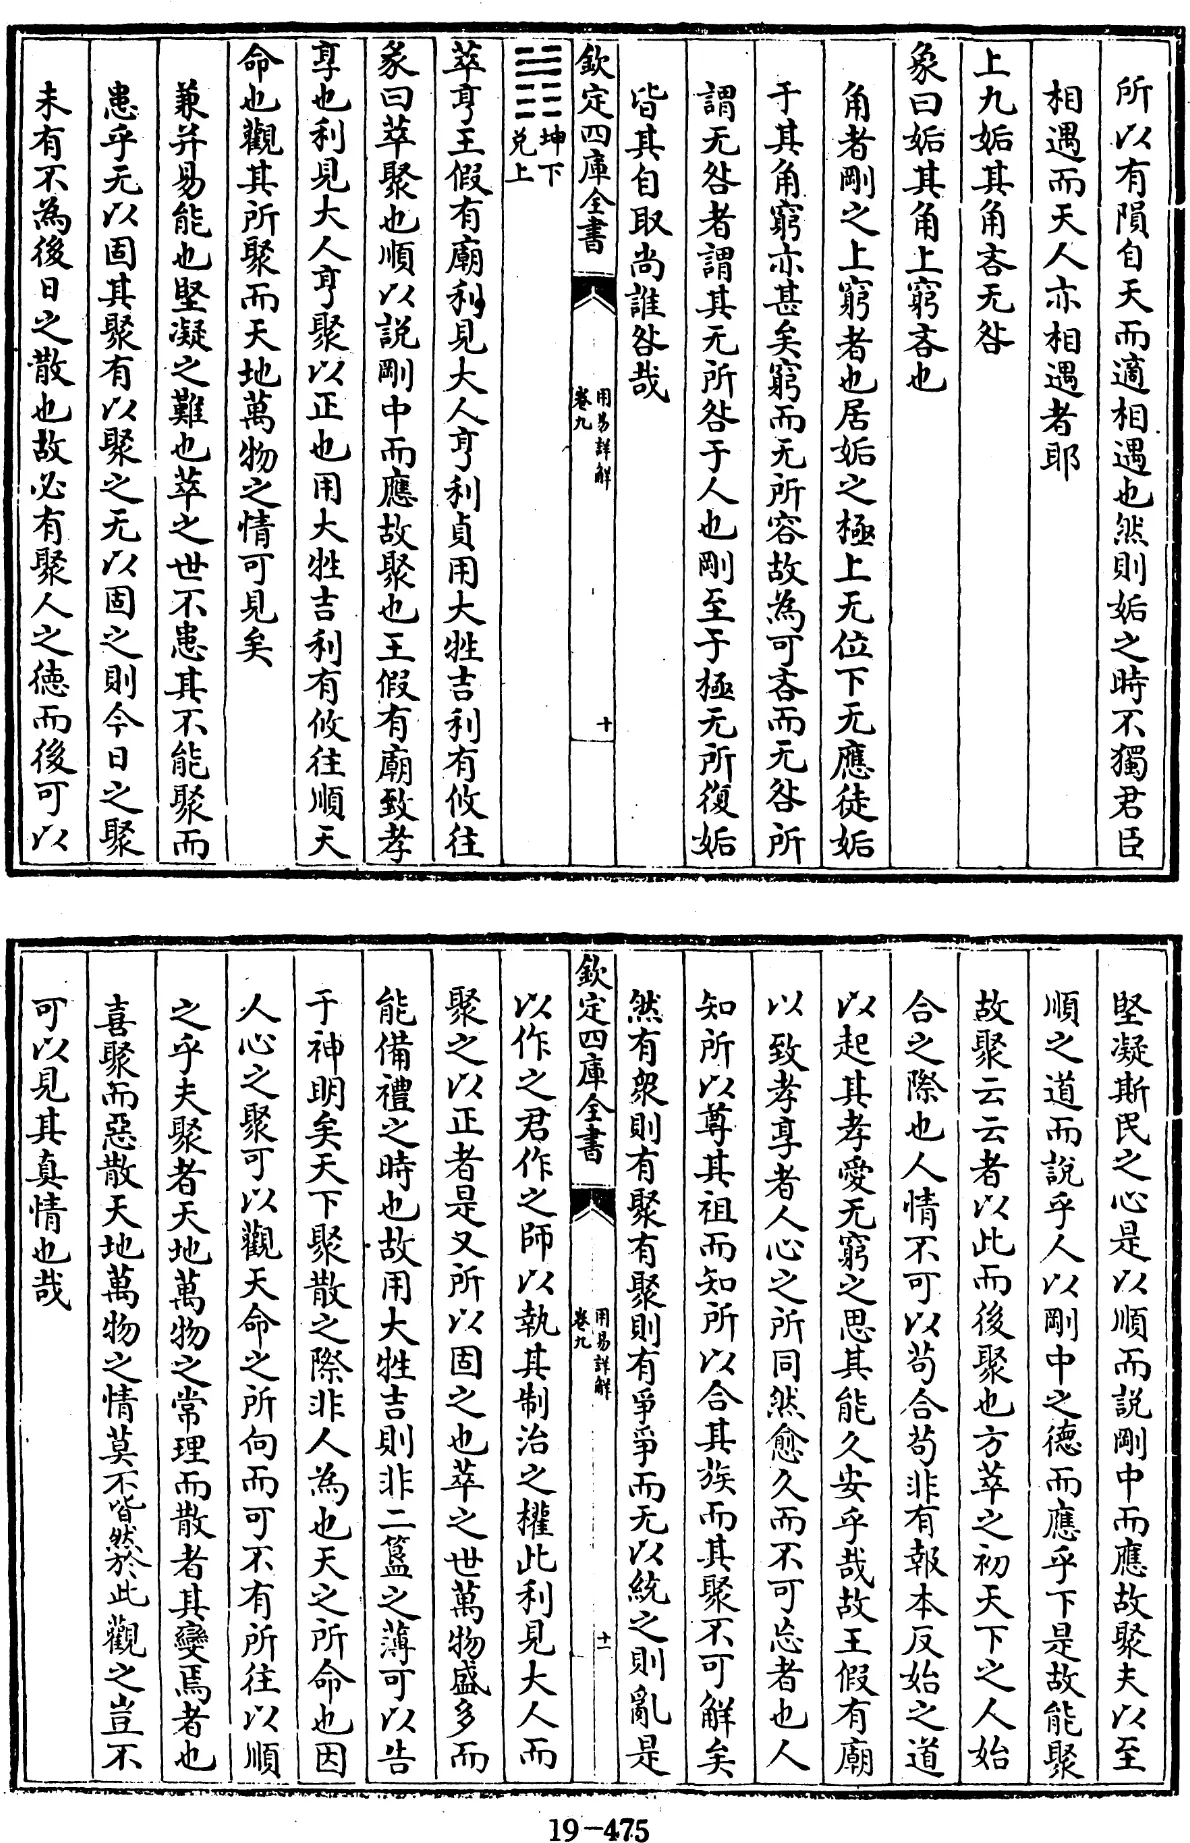 所以有隕自天而適相遇也然則姤之時不獨君臣
相遇而天人亦相遇者耶
上九姤其角吝无咎
象曰姤其角上窮吝也
角者剛之上窮者也居姤之極上无位下无應徒姤
于其角窮亦甚矣窮而无所容故為可吝而无咎所
謂无咎者謂其无所咎于人也剛至于極无所復姤
皆其自取尚誰咎哉
欽定四庫全書
周易詳解
卷九
十
䷬
坤下
兌上
萃亨王假有廟利見大人亨利貞用大牲吉利有攸往
彖曰萃聚也順以說剛中而應故聚也王假有廟致孝
享也利見大人亨聚以正也用大牲吉利有攸往順天
命也觀其所聚而天地萬物之情可見矣
兼并易能也堅凝之難也萃之世不患其不能聚而
患乎无以固其聚有以聚之无以固之則今日之聚
未有不為後日之散也故必有聚人之德而後可以
堅凝斯民之心是以順而說剛中而應故聚夫以至
順之道而說乎人以剛中之德而應乎下是故能聚
故聚云云者以此而後聚也方萃之初天下之人始
合之際也人情不可以苟合苟非有報本反始之道
以起其孝愛无窮之思其能久安乎哉故王假有廟
以致孝享者人心之所同然愈久而不可忘者也人
知所以尊其祖而知所以合其族而其聚不可解矣
然有衆則有聚有聚則有爭爭而无以統之則亂是
欽定四庫全書
周易詳解
卷九
十一
以作之君作之師以執其制治之權此利見大人而
聚之以正者是又所以固之也萃之世萬物盛多而
能備禮之時也故用大牲吉則非二簋之薄可以告
于神明矣天下聚散之際非人為也天之所命也因
人心之聚可以觀天命之所向而可不有所往以順
之乎夫聚者天地萬物之常理而散者其變焉者也
喜聚而惡散天地萬物之情莫不皆然於此觀之豈不
可以見其真情也哉
19-475